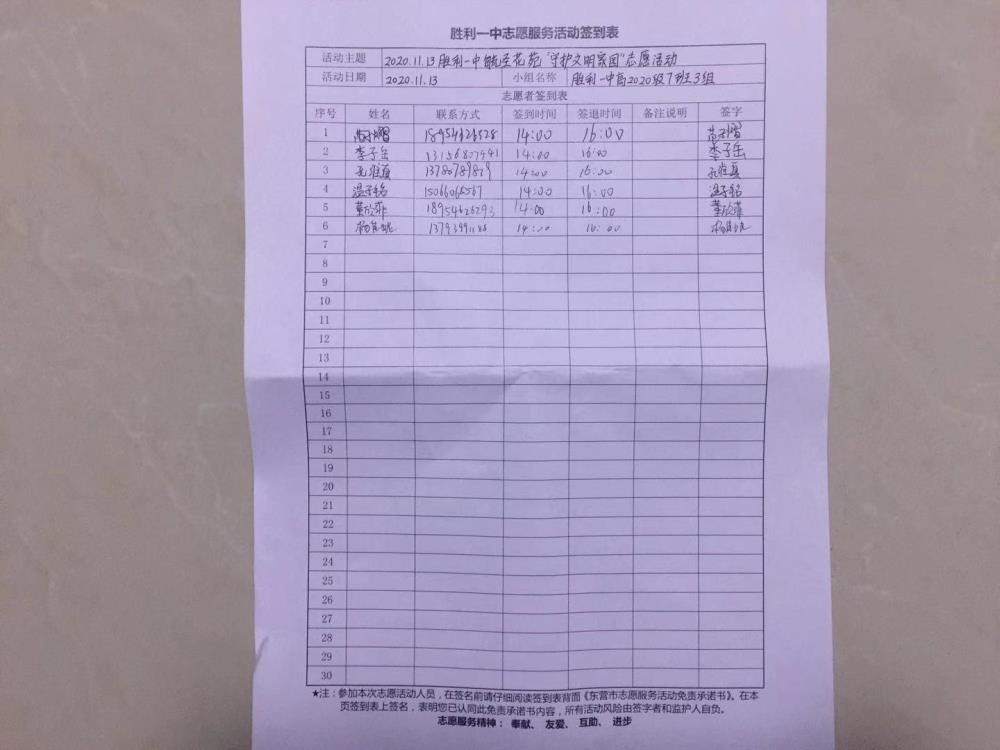 胜利一中志愿服务活动签到表
活动主题 2020.11.13胜利一中 花苑"守护文明家园"志愿活动
活动日期 2020.11.13 小组名称 胜利一中高2020级7班3组
志愿者签到表
序号 姓名 联系方式 签到时间 签退时间 备注说明 签字
1 14:00 16:00
2 李子岳 14:00 16:00 李子岳
3 14:00 16:00
4 温子铭 14:00 16:00 温子铭
5 董欣菲 18954626293 14:00 16:00 董欣菲
6 14:00 16:00
7
8
9
10
11
12
13
14
15
16
17
18
19
20
21
22
23
24
25
26
27
28
29
30
★注:参加本次志愿活动人员,在签名前请仔细阅读签到表背面《东营市志愿服务活动免责承诺书》。在本
页签到表上签名,表明您已认同此免责承诺书内容,所有活动风险由签字者和监护人自负。
志愿服务精神: 奉献、 友爱、 互助、 进步